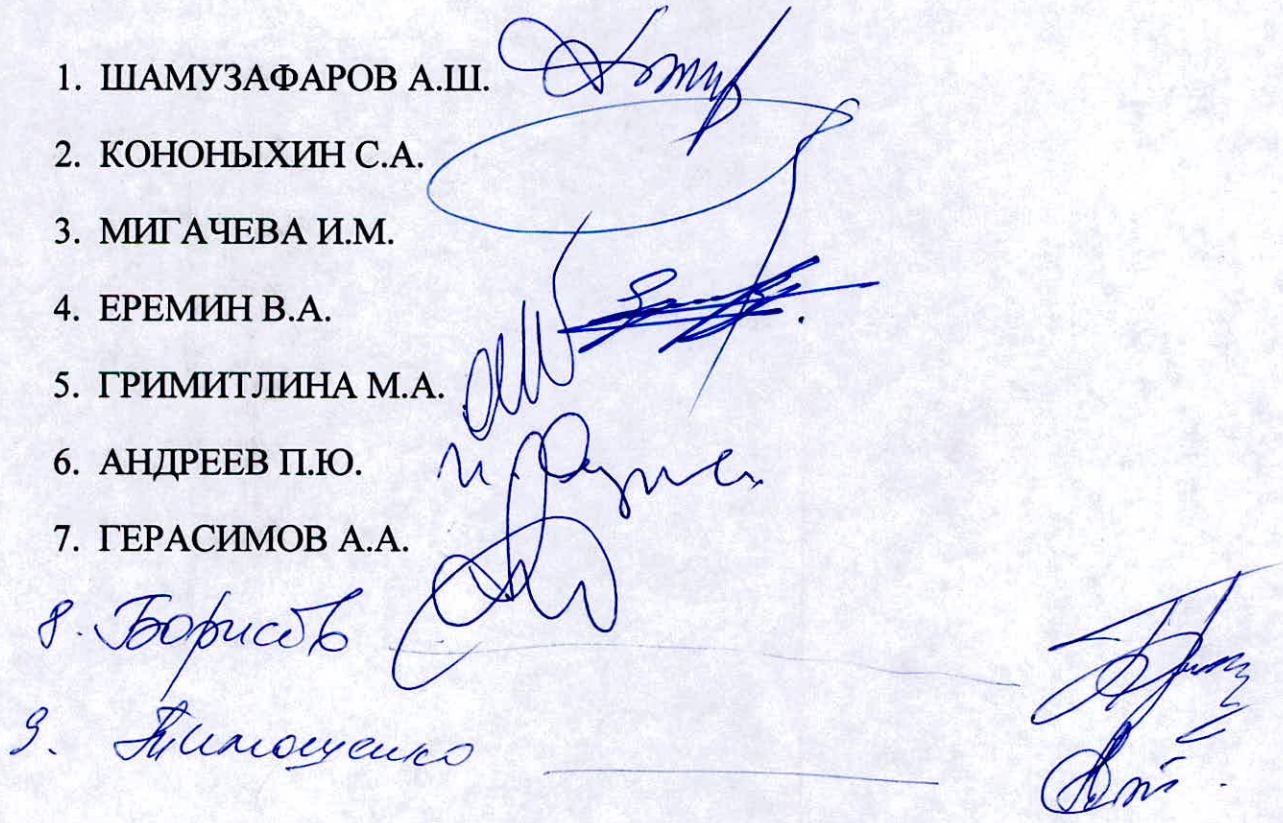 1. ШАМУЗАФАРОВ А.Ш.
2. КОНОНЫХИН С.А.
3. МИГАЧЕВА И.М.
4. ЕРЕМИН В.А.
5. ГРИМИТЛИНА М.А.
6. АНДРЕЕВ П.Ю.
7. ГЕРАСИМОВ А.А.
8. Борисов
9. Тимошенко